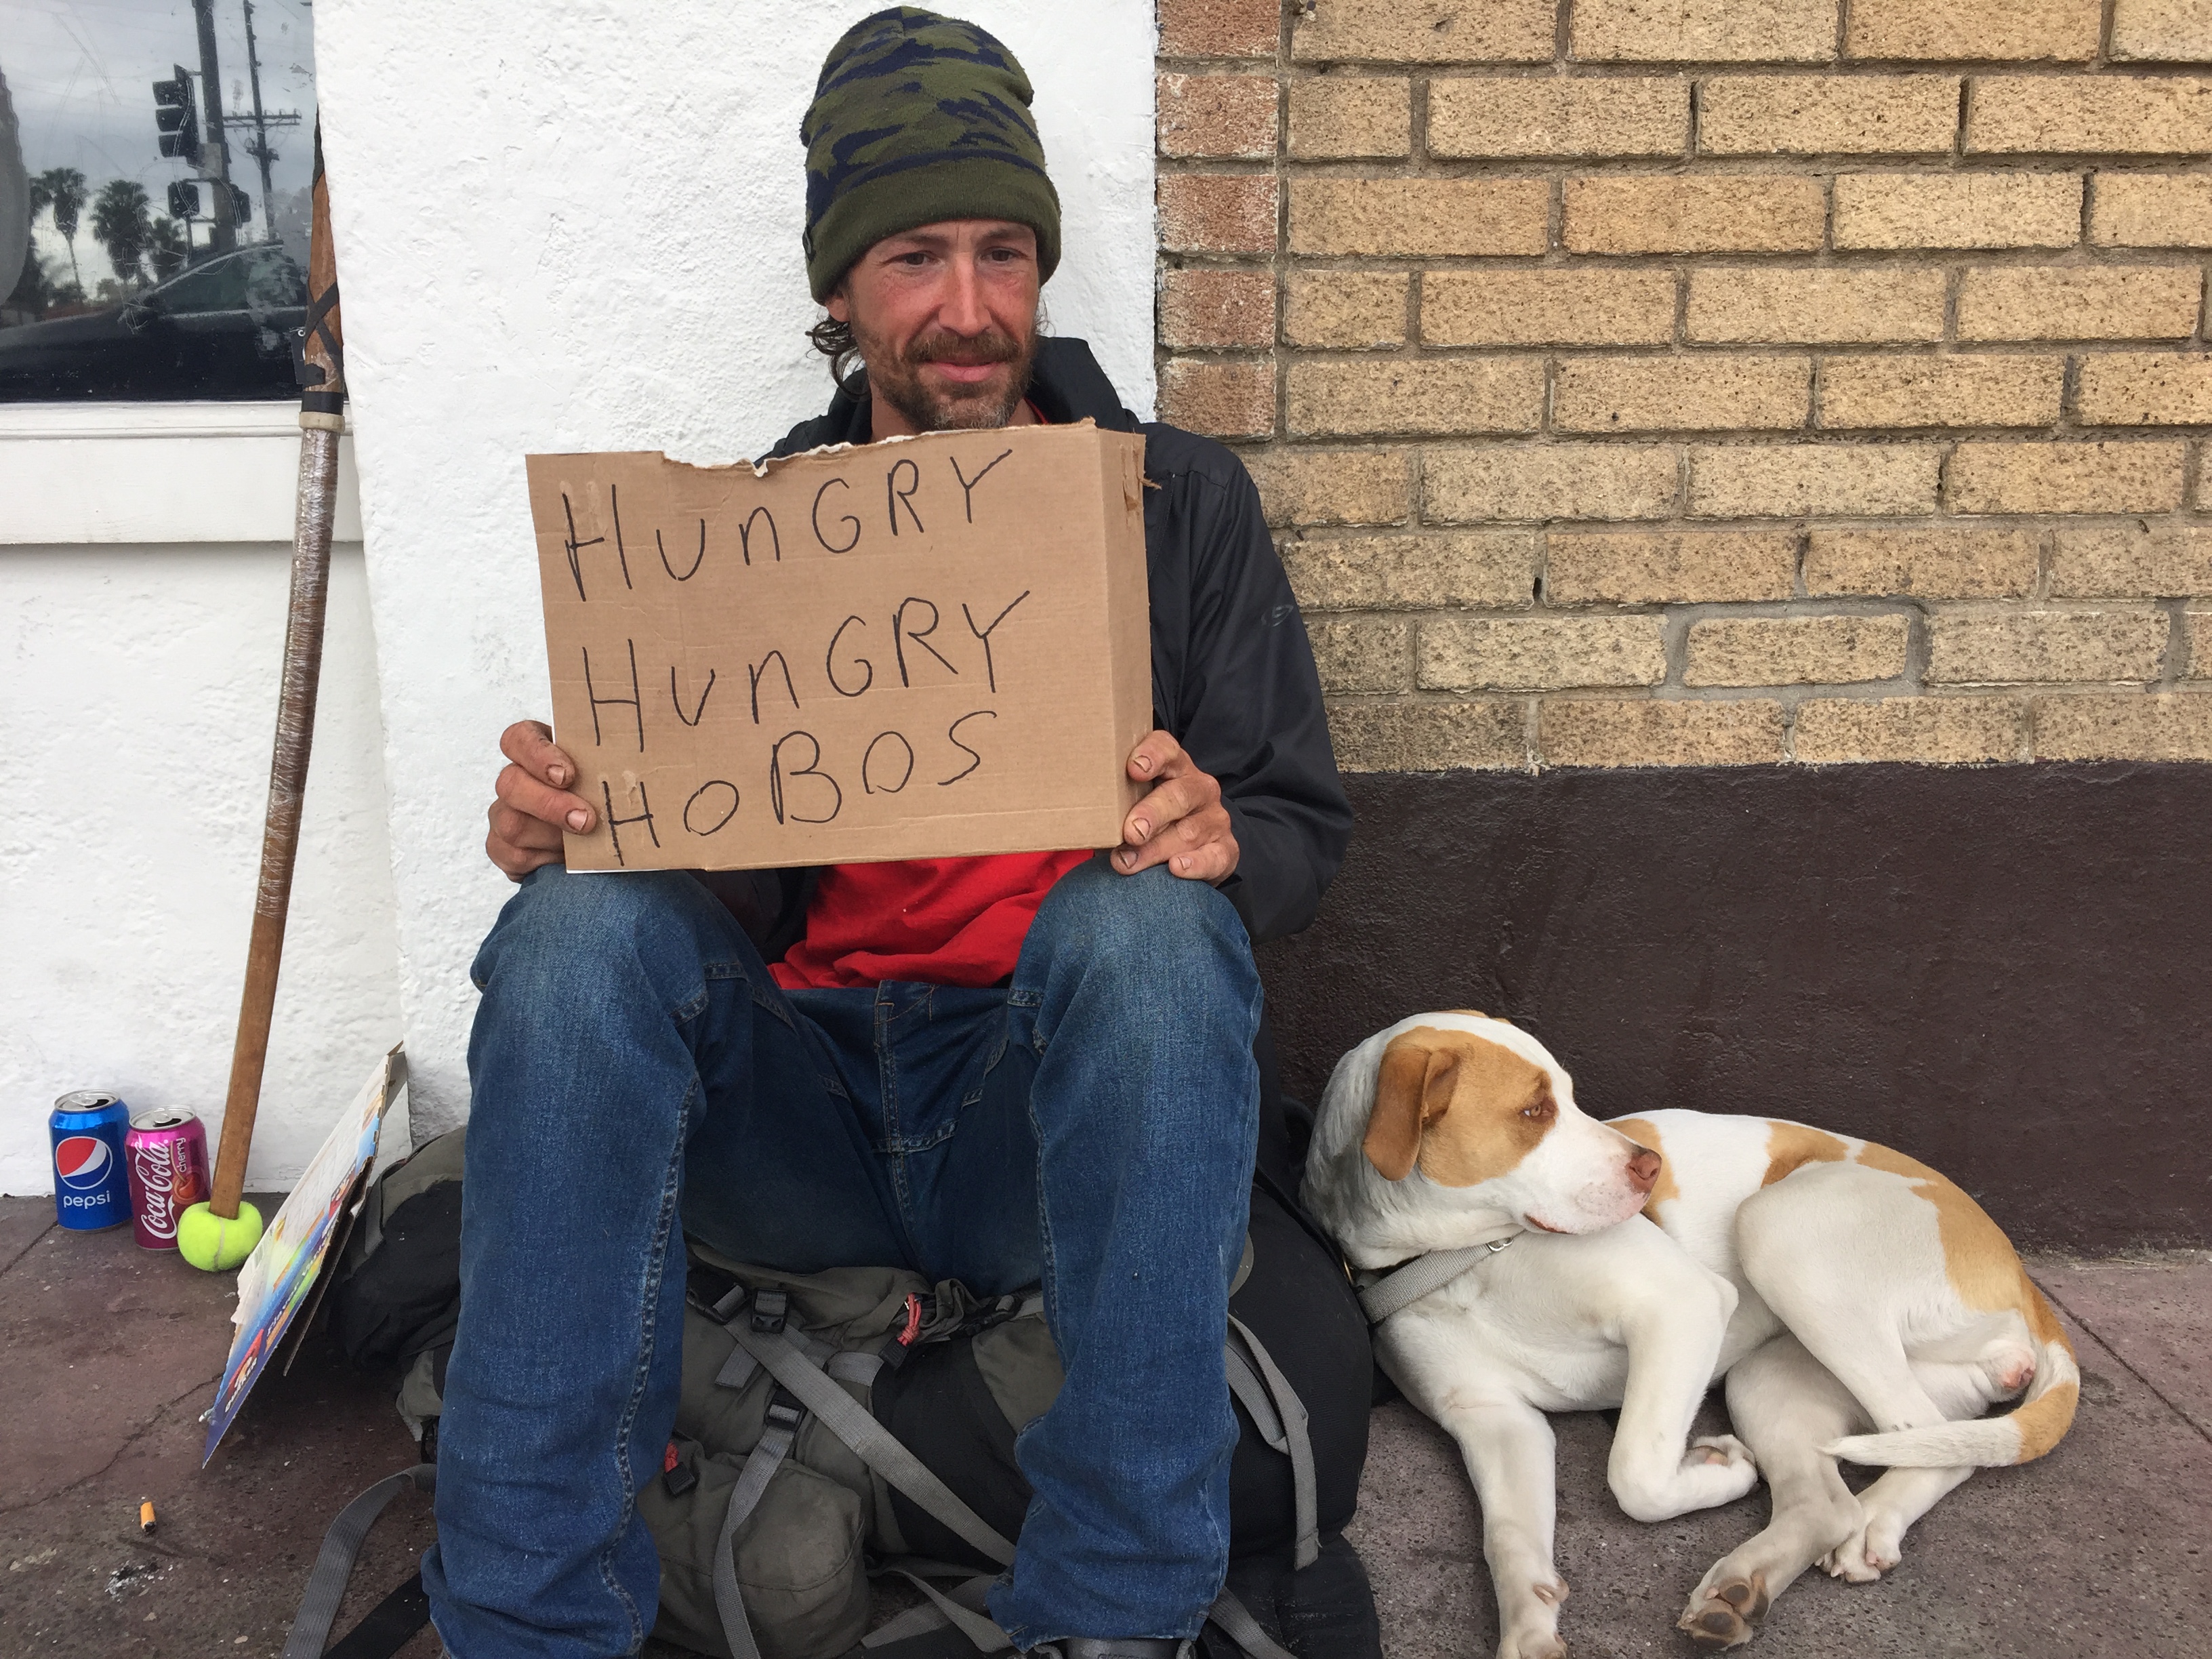 HUnGRY
HUnGRY
HOBOS
pepsi
Coca-Cola
cherry